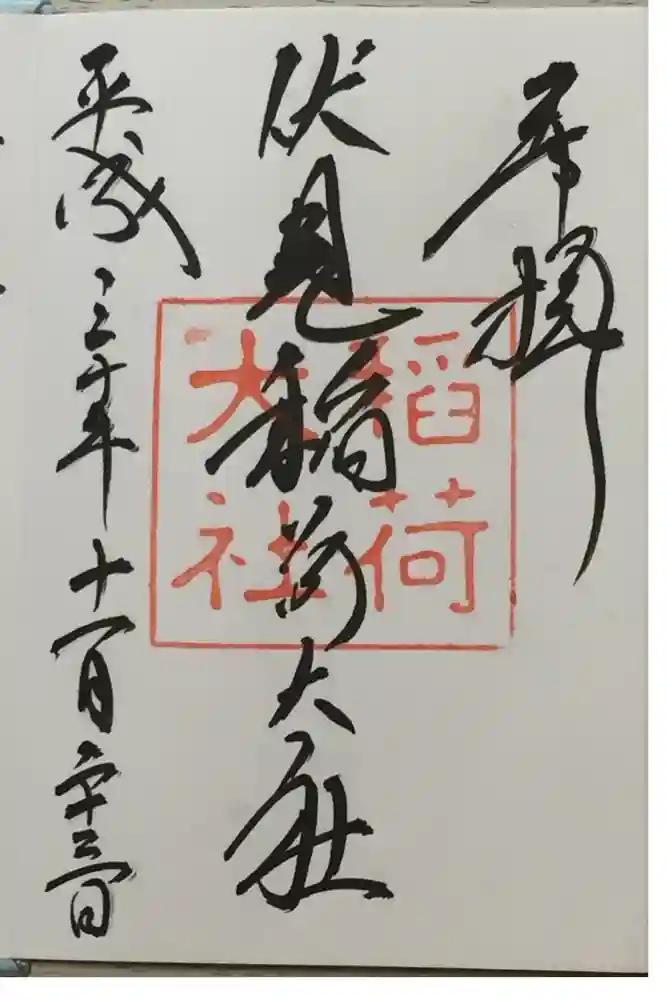 奉拝
伏見稲荷大社
平成三十年十一月二十三日
稲荷
大社